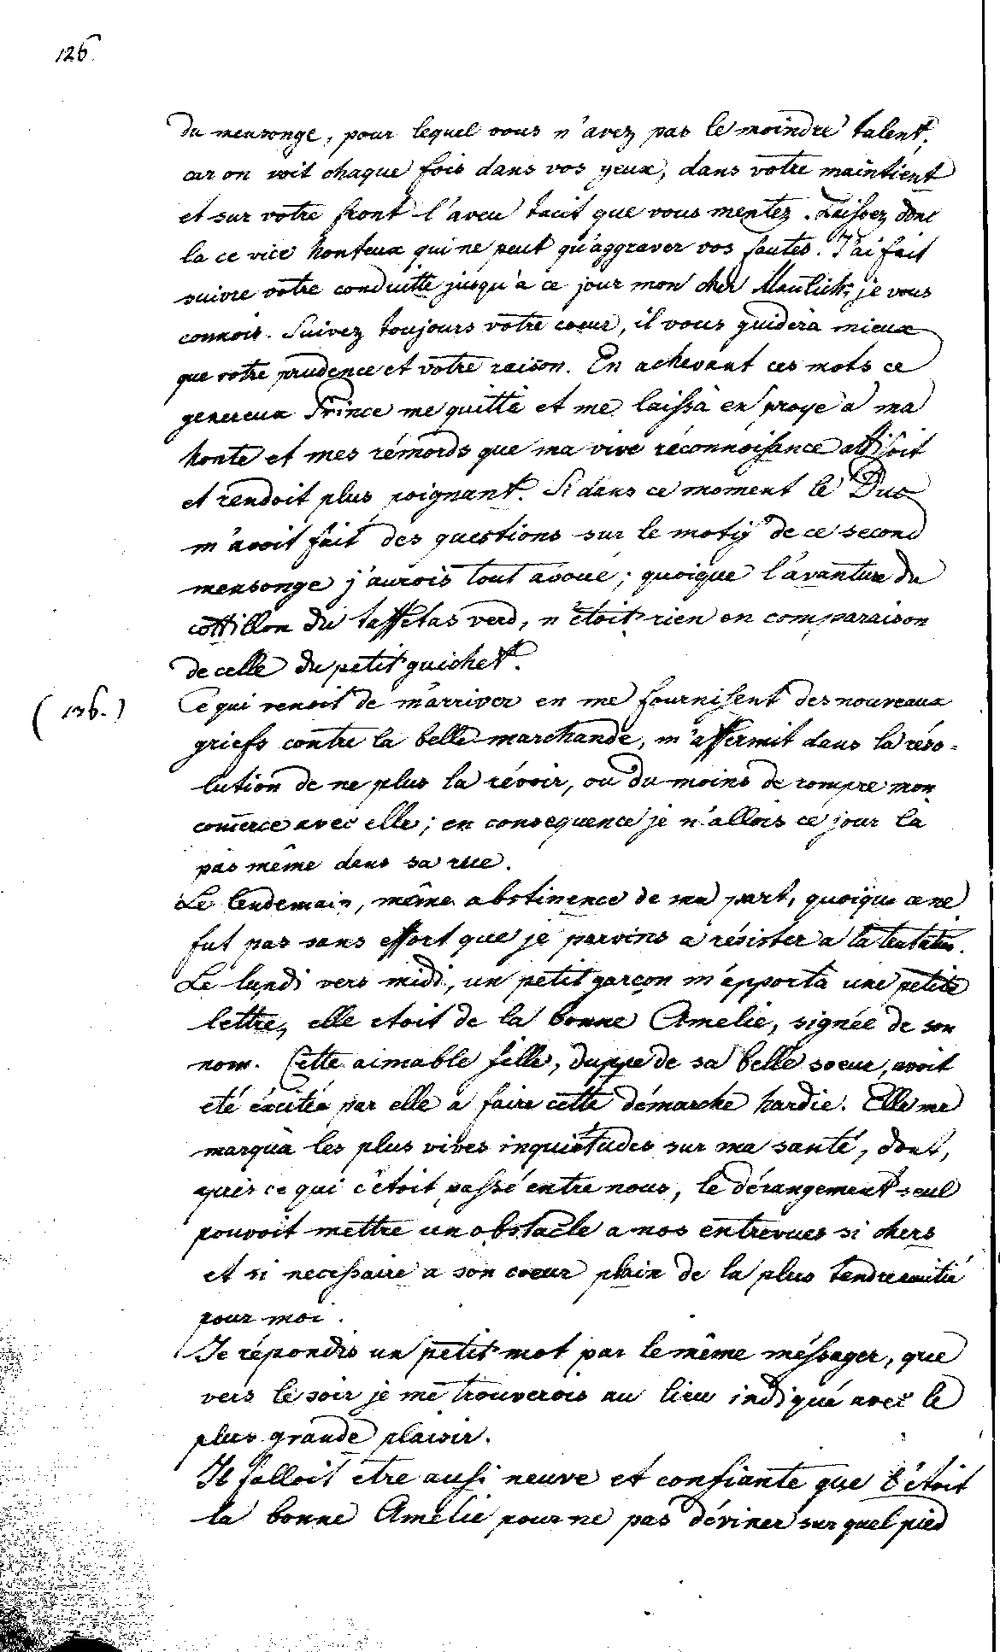 126.
du mensonge, pour lequel vous n'avez pas le moindre talent,
car on voit chaque fois dans vos yeux, dans votre maintient
et sur votre front l'aveu tacit que vous mentez. Laissez donc
la ce vice honteux qui ne peut qu'aggraver vos fautes. J'ai fait
suivre votre conduitte jusqu'à ce jour mon cher je vous
connois. Suivez toujours votre coeur, il vous guidera mieux
que votre prudence et votre raison. En achevant ces mots ce
genereux Prince me quitta et me laissa en proye a ma
honte et mes rémords que ma vive réconnoissance attisoit
et rendoit plus poignant. Si dans ce moment le Duc
m'avoit fait des questions sur le motif de ce second
mensonge j'aurois tout avoué; quoique l'avanture du
cottillon du taffetas verd, n'étoit rien en comparaison
de celle du petit guichet.
(126.) Ce qui venoit de m'arriver en me fournissent des nouveaux
griefs contre la belle marchande, m'affermit dans la réso-
lution de ne plus la révoir, ou du moins de rompre mon
comerce avec elle; en consequence je n'allois ce jour la
pas même dans sa rue.
Le lendemain, même abstinence de ma part, quoique ce ne
fut pas sans effort que je parvins a résister a la tentation.
Le lundi vers midi, un petit garçon m'apporta une petite
lettre, elle etoit de la bonne Amelie, signée de son
nom. Cette aimable fille, duppe de sa belle soeur, avoit
été éxcitée par elle a faire cette démarche hardie. Elle me
marqua les plus vives inquiétudes sur ma santé, dont,
après ce qui c'etoit passé entre nous, le dérangement seul
pouvoit mettre un obstacle a nos entrevues si chers
et si necessaire a son coeur plain de la plus tendre amitié
pour moi.
Je répondis un petit mot par le même méssager, que
vers le soir je me trouverois au lieu indiqué avec le
plus grande plaisir.
Il falloit etre aussi neuve et confiante que l'étoit
la bonne Amelie pour ne pas déviner sur quel pied